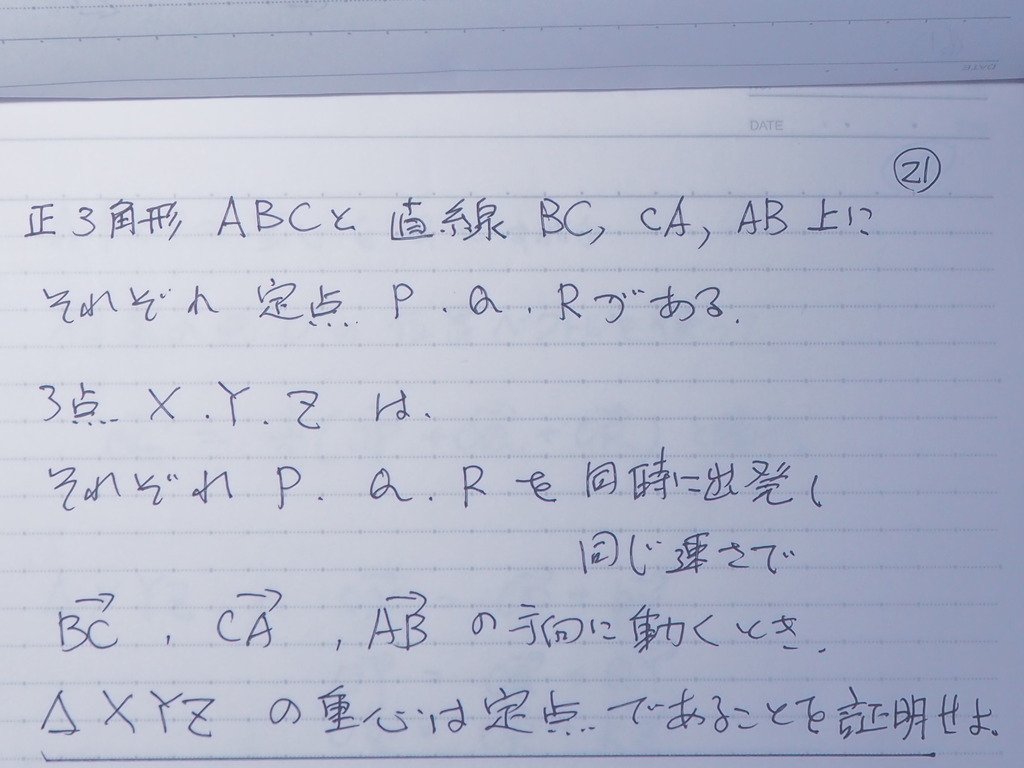 DATE
DATE
㉑
正3角形 ABCと 直線 BC, CA, AB 上に
それぞれ 定点 P. Q. Rがある.
3点 X. Y. Z は.
それぞれ P. Q. R を 同時に出発し
同じ速さで
BC, CA, AB の方向に動くとき.
△XYZ の重心は定点であることを証明せよ.